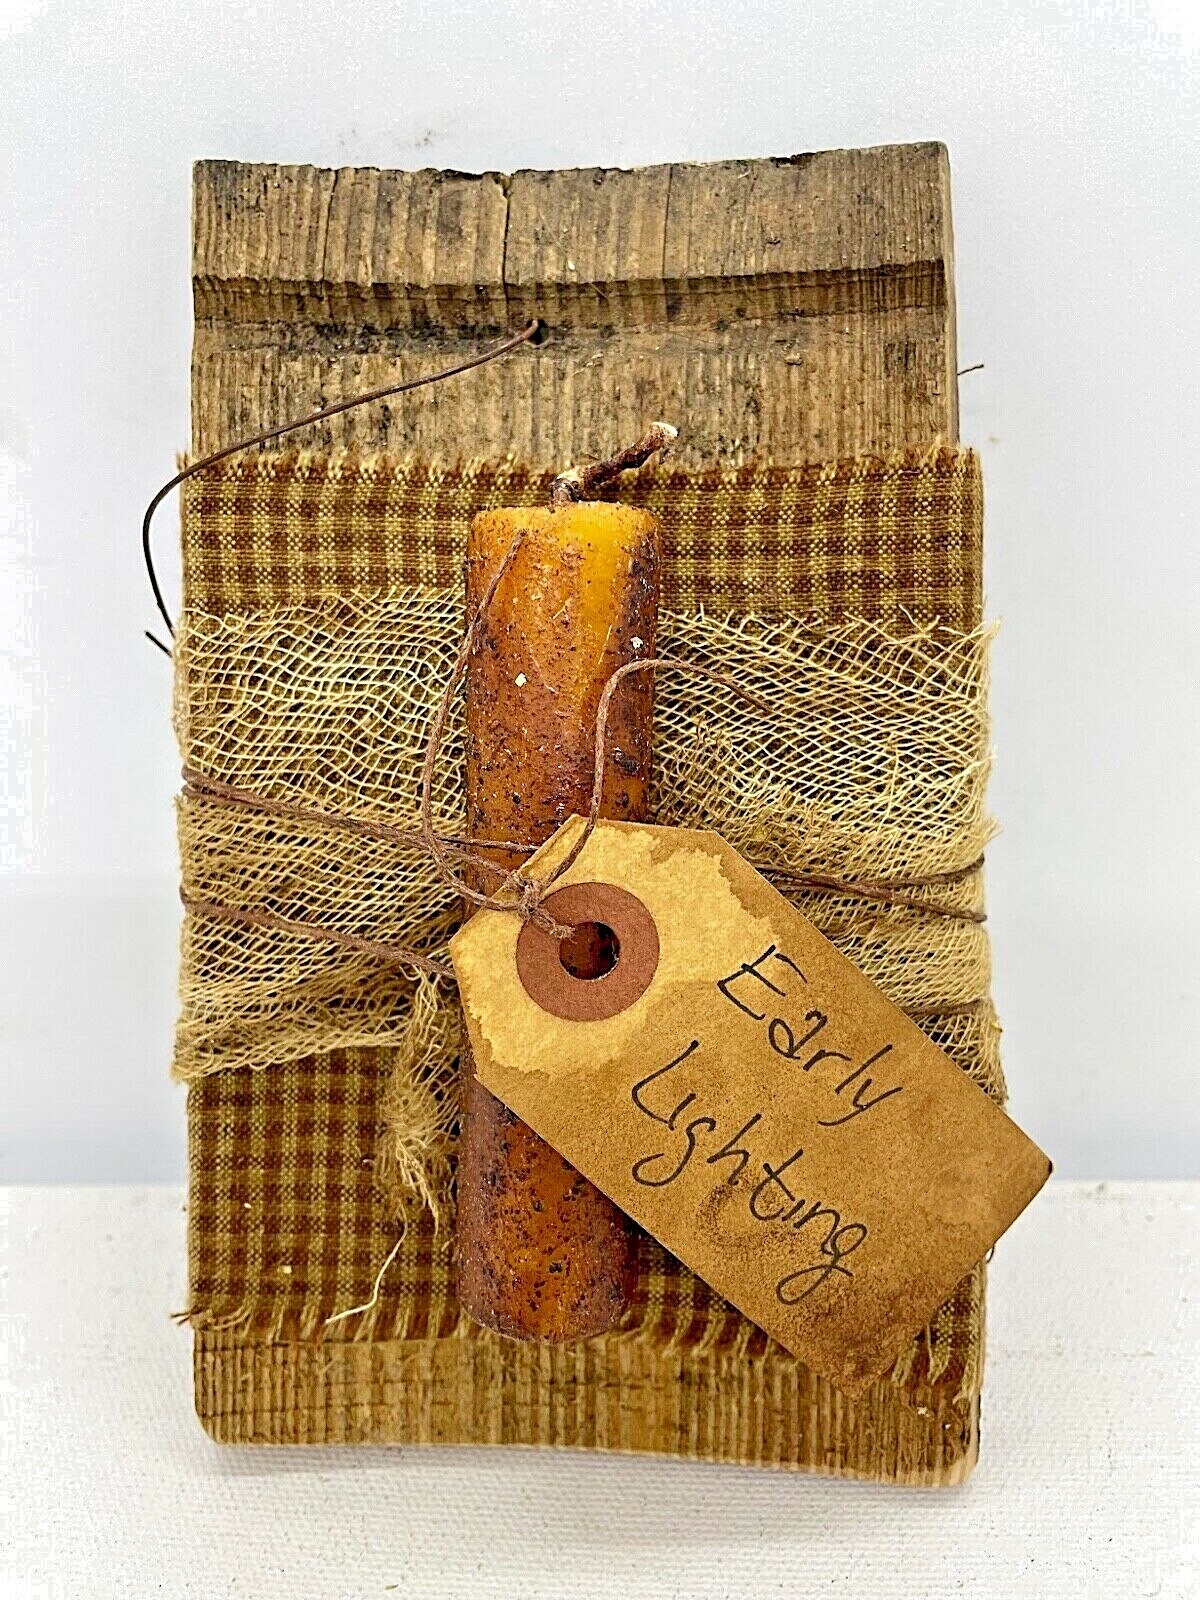 Early
Lighting